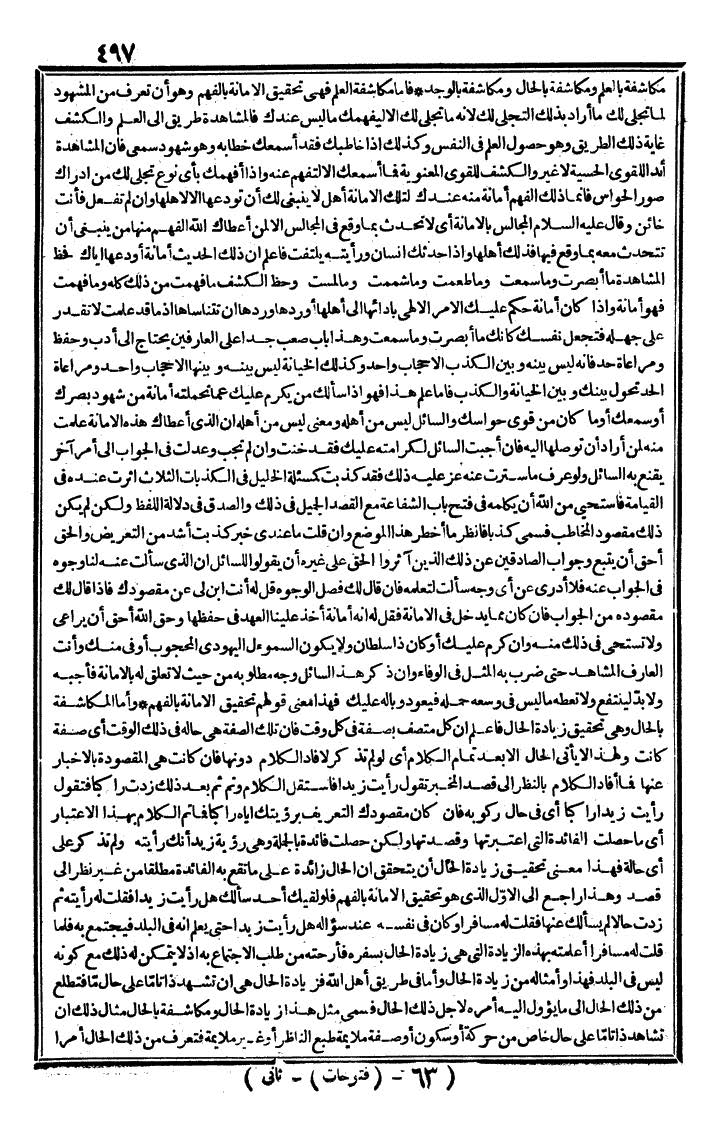 ٤٩٧
مكاشفة بالعلم ومكاشفة بالحال ومكاشفة بالوجد * فامامكاشفة العلم فهى تحقيق الامانة بالفهم وهو أن تعرف من المشهود
لما تجلى لك ما أراد بذلك التجلى لك لانه ما تجلى لك الا ليفهمك ما ليس عندك فالمشاهدة طريق الى العلم والكشف
غاية ذلك الطريق وهو حصول العلم فى النفس وكذلك اذا خاطبك فقد أسمعك خطابه وهو شهود سمعى فان المشاهدة
أبد اللقوى الحسية لا غير والكشف للقوى المعنوية فما أسمعك الا لتفهم عنه واذا أفهمك بأى نوع تجلى لك من ادراك
صور الحواس فانما ذلك الفهم أمانة منه عندك لتلك الامانة أهل لا ينبغى لك أن تودعها الا لاهلها وان لم تفعل فأنت
خائن وقال عليه السلام المجالس بالامانة أى لا تحدث بما وقع فى المجالس الا لمن أعطاك الله الفهم منها من ينبغى أن
تتحدث معه بما وقع فيها فذلك أهلها واذا حدثك انسان ورأيته يلتفت فاعلم ان ذلك الحديث أمانة أودعها اياك فحظ
المشاهدة ما أبصرت وما سمعت وما طعمت وما شممت وما لمست وحظ الكشف ما فهمت من ذلك كله وما فهمت
فهو أمانة واذا كان أمانة حكم عليك الامر الالهى بادائها الى أهلها أوردها وردها ان تتناساها اذ ما قد علمت لا تقدر
على جهله فتجعل نفسك كانك ما أبصرت وما سمعت وهذا باب صعب جدا على العارفين يحتاج الى أدب وحفظ
ومراعاة حد فانه ليس بينه وبين الكذب الا حجاب واحد وكذلك الخيانة ليس بينه وبينها الا حجاب واحد ومراعاة
الحد تحول بينك وبين الخيانة والكذب فاما علم هذا فهو اذا سألك من يكرم عليك عما تحملته أمانة من شهود بصرك
أو سمعك أو ما كان من قوى حواسك والسائل ليس من أهله ومعنى ليس من أهله ان الذى أعطاك هذه الامانة علمت
منه لمن أراد أن توصلها اليه فان أجبت السائل لكرامته عليك فقد خنت وان لم تجب وعدلت فى الجواب الى أمر آخر
يقنع به السائل ولو عرف ما سترت عنه عز عليه ذلك فقد كذبت كمسئلة الخليل فى الكذبات الثلاث اثرت عنده فى
القيامة فاستحيى من الله أن يكلمه فى فتح باب الشفاعة مع القصد الجيل فى ذلك والصدق فى دلالة اللفظ ولكن لم يكن
ذلك مقصود المخاطب فسمى كذبا فانظر ما أخطر هذا الموضع وان قلت ما عندى خبر كذبت أشد من التعريض والحق
أحق أن يتبع وجواب الصادقين عن ذلك الذين آثروا الحق على غيره أن يقولوا للسائل ان الذى سألت عنه لنا وجوه
فى الجواب عنه فلا أدرى عن أى وجه سألت لتعلمه فان قال لك فصل الوجوه قل له أنت ابن لى عن مقصودك فاذا قال لك
مقصوده من الجواب فان كان مما يدخل فى الامانة فقل له انه أمانة أخذ علينا العهد فى حفظها وحق الله أحق أن يراعى
ولا تستحى فى ذلك منه وان كرم عليك أو كان ذا سلطان ولا يكون السموءل اليهودى المحجوب أوفى منك وأنت
العارف المشاهد حتى ضرب به المثل فى الوفاء وان ذكر هذا السائل وجه مطلوبه من حيث لا تعلق له بالامانة فأجبه
ولا بد لينتفع ولا تعطه ما ليس فى وسعه حمله فيعود وباله عليك فهذا معنى قولهم تحقيق الامانة بالفهم * وأما المكاشفة
بالحال وهى تحقيق زيادة الحال فاعلم ان كل متصف بصفة فى كل وقت فان تلك الصفة هى حاله فى ذلك الوقت أى صفة
كانت ولهذا لا يأتى الحال الا بعد تمام الكلام أى لو لم تذكر لافاد الكلام دونها فان كانت هى المقصودة بالاخبار
عنها فما أفاد الكلام بالنظر الى قصد المخبر تقول رأيت زيدا فاستقل الكلام وتم ثم بعد ذلك زدت راكبا فتقول
رأيت زيدا راكبا أى فى حال ركوبه فان كان مقصودك التعريف برؤيتك اياه راكبا فماتم الكلام بهذا الاعتبار
أى ما حصلت الفائدة التى اعتبرتها وقصدتها ولكن حصلت فائدة بالجلة وهى رؤية زيد أنك رأيته ولم تذكر على
أى حالة فهذا معنى تحقيق زيادة الحال أن يتحقق ان الحال زائدة على ما تقع به الفائدة مطلقا من غير نظر الى
قصد وهذا راجع الى الاول الذى هو تحقيق الامانة بالفهم فاولقيك أحد سألك هل رأيت زيدا فقلت له رأيته ثم
زدت حالا لم يسألك عنها فقلت له مسافرا وكان فى نفسه عند سؤاله هل رأيت زيدا حتى يعلم انه فى البلد فيجتمع به فلما
قلت له مسافرا أعلمته بهذه الزيادة التى هى زيادة الحال بسفره فأرحته من طلب الاجتماع به اذ لا يتمكن له ذلك مع كونه
ليس فى البلد فهذا وأمثاله من زيادة الحال وأما فى طريق أهل الله فزيادة الحال هى ان تشهد ذاتا ما على حال ما فتطلع
من ذلك الحال الى ما يؤول اليه أمره لاجل ذلك الحال فسمى مثل هذا زيادة الحال ومكاشفة بالحال مثال ذلك ان
تشاهد ذاتا ما على حال خاص من حركة أو سكون أو صفة ملايمة طبع الناظر أو غير ملايمة فتعرف من ذلك الحال أمرا
( ٦٣ - ( فتوحات ) - ثانى )